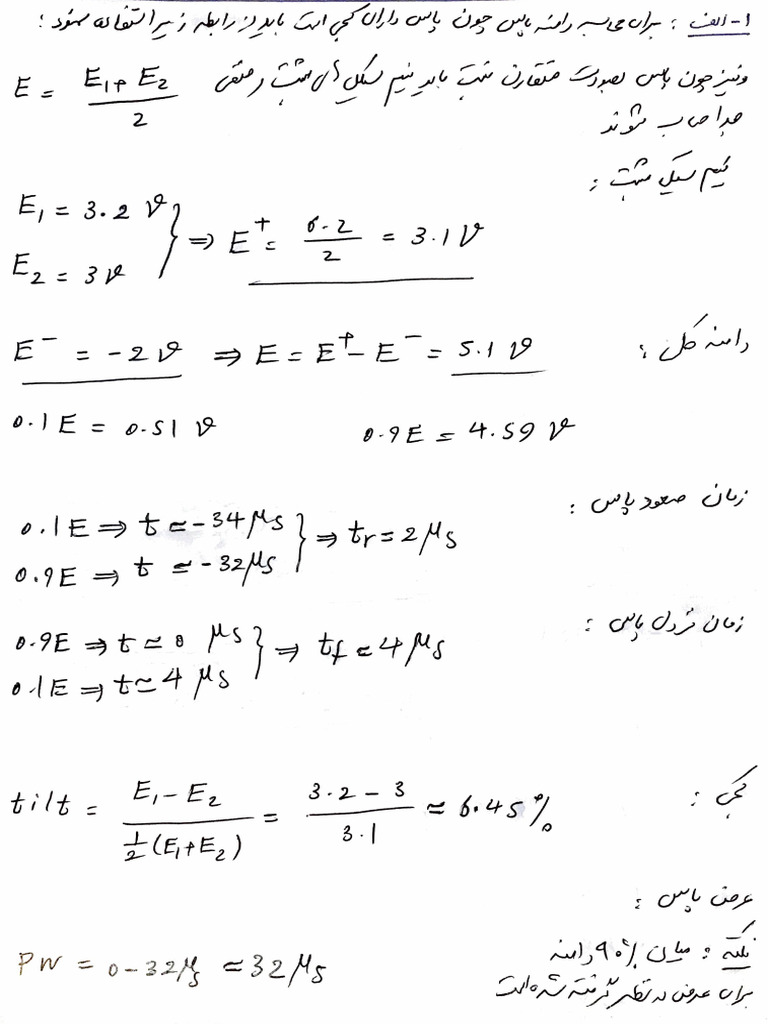 ۱- الف : برای محاسبه دامنه پالس چون پالس دارای کجی است باید از رابطه زیر استفاده نمود :
E = E1+E2 / 2 و نیز چون پالس بصورت متقارن نیست باید نیم سیکل های مثبت و منفی
جدا حساب شوند
نیم سیکل مثبت :
E1 = 3.2 V
E2 = 3 V } ⇒ E+ = 6.2 / 2 = 3.1 V
دامنه کل :
E- = -2 V ⇒ E = E+ - E- = 5.1 V
0.1 E = 0.51 V 0.9E = 4.59 V
زمان صعود پالس :
0.1E ⇒ t ≃ -34 μs
0.9E ⇒ t ≃ -32 μs } ⇒ tr = 2 μs
زمان نزول پالس :
0.9E ⇒ t ≃ 0 μs
0.1E ⇒ t ≃ 4 μs } ⇒ tf ≃ 4 μs
کجی :
tilt = E1 - E2 / ½ (E1+E2) = 3.2 - 3 / 3.1 ≈ 6.45 %
عرض پالس :
نکته : میان ۹۰% دامنه
برای عرض در نظر گرفته شده است
PW = 0-32 μs ≃ 32 μs